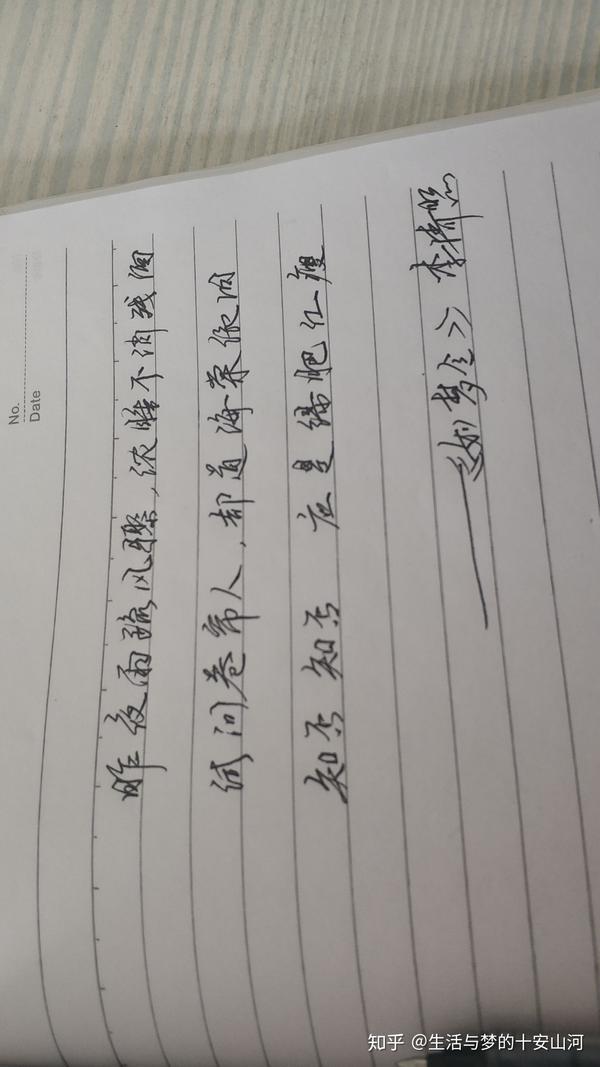 No.
Date
昨夜雨疏风骤,浓睡不消残酒
试问卷帘人,却道海棠依旧
知否 知否 应是绿肥红瘦
——《如梦令》李清照
知乎 @生活与梦的十安山河